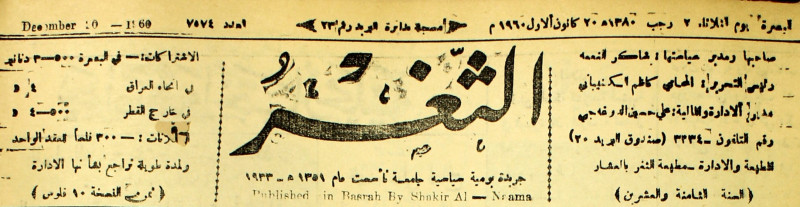 البصرة يوم الثلاثاء ٢ رجب ١٣٨٠ ه ٢٠ كانون الاول ١٩٦٠ م
مسجلة بدائرة البريد رقم ٢٣
العدد ٧٥٧٤
December 20 — 1960
صاحبها ومدير سياستها : شاكر النعمه
رئيس التحرير : المحامي كاظم السكنيباني
مدير الادارة والمالية : علي حسين الدرفجي
رقم التلفون — ٣٢٣٤ (صندوق البريد ٢٠)
المطبعة والادارة — مطبعة الثغر بالعشار
( السنة الثامنة والعشرين )
الثغر
جريدة يومية سياسية جامعة تأسست عام ١٣٥١ ه — ١٩٣٣
Published in Basrah By Shakir Al — Naama
الاشتراكات : — في البصرة ٥٠٠ — ٣ دنانير
في انحاء العراق ٤ر
في خارج القطر ٥٠٠ — ٤
الاعلانات : — ٣٠٠ فلساً للعقد الواحد
ولمدة طويلة تراجع بشأنها الادارة
( ثمن النسخة ١٠ فلوس )